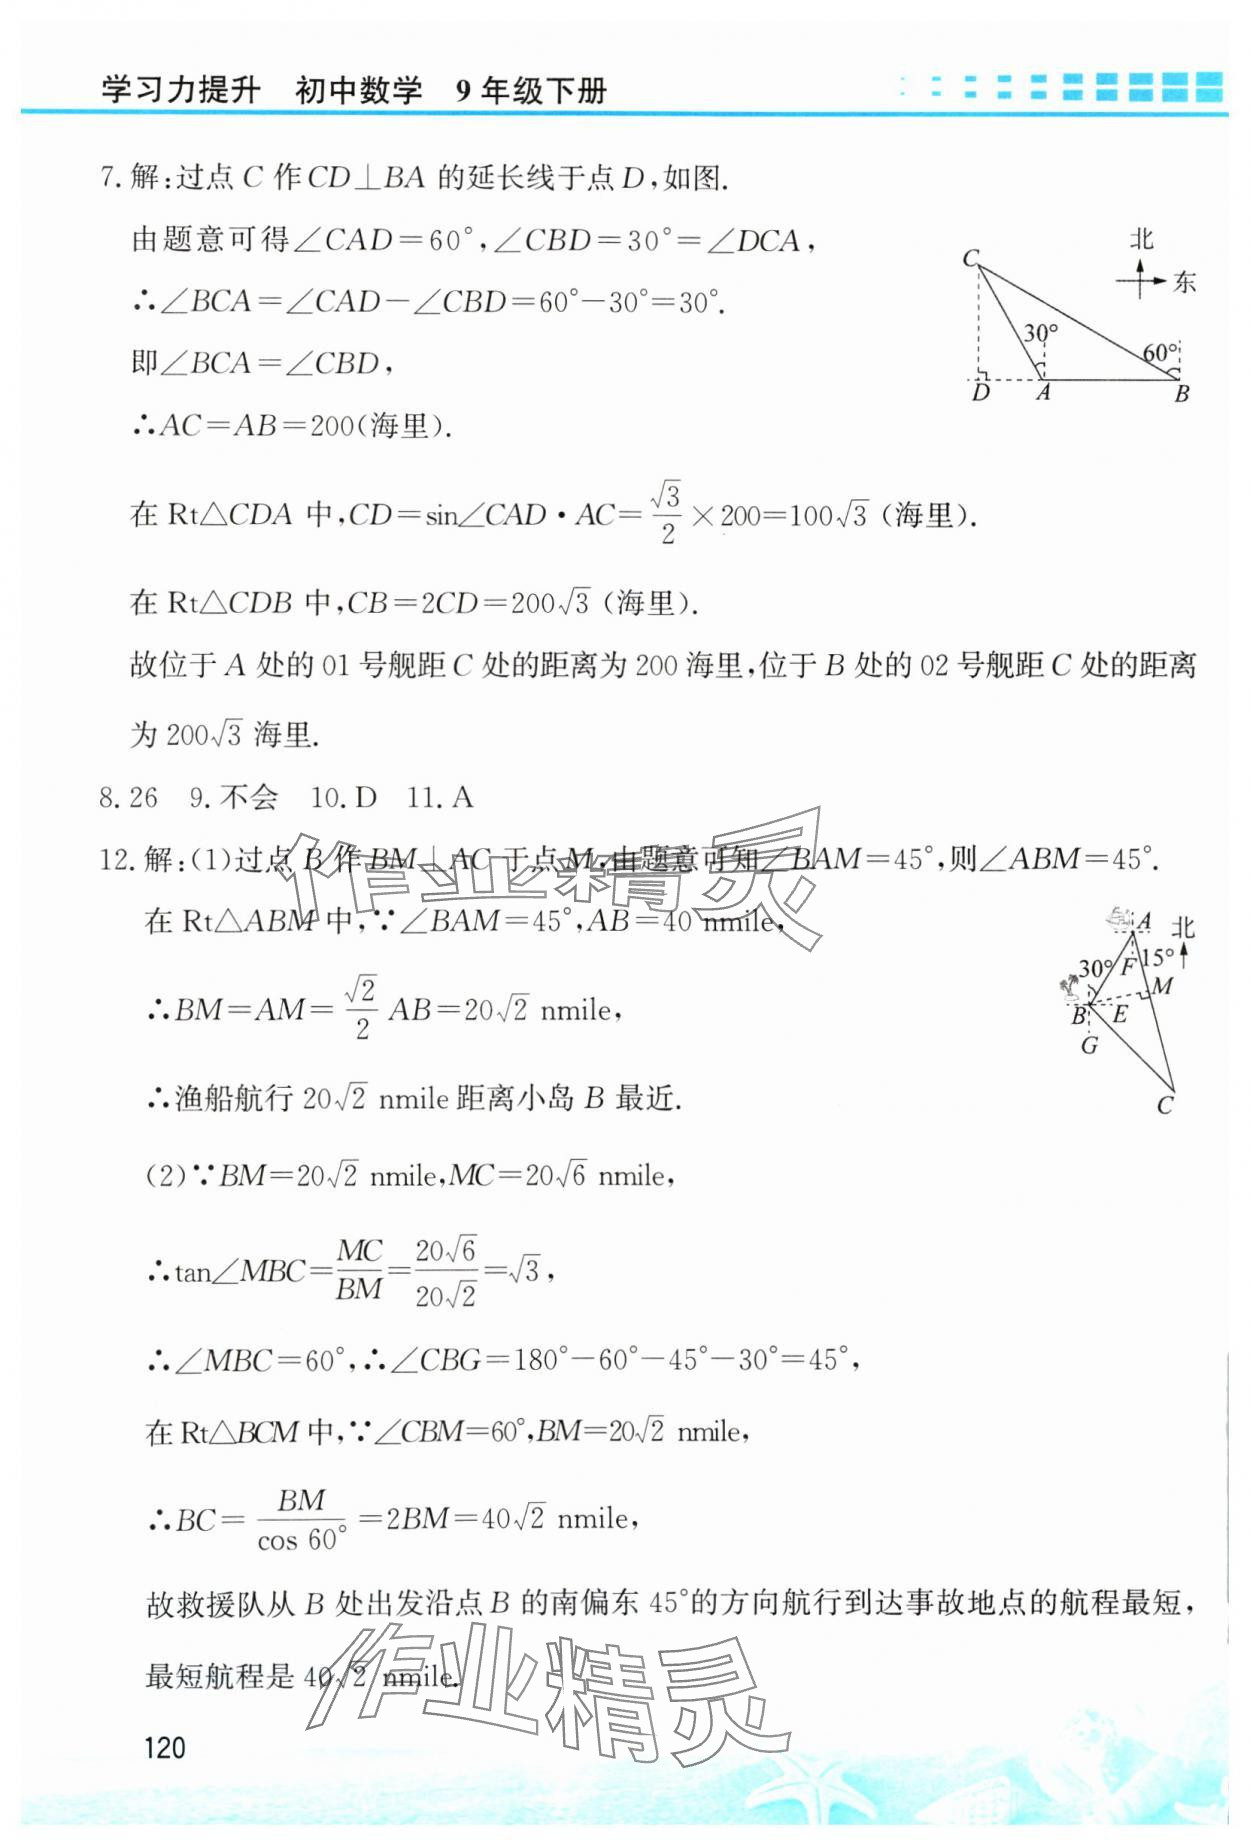 学习力提升 初中数学 9年级下册
7.解:过点C作CD⊥BA的延长线于点D,如图.
由题意可得∠CAD=60°,∠CBD=30°=∠DCA,
∴∠BCA=∠CAD-∠CBD=60°-30°=30°.
即∠BCA=∠CBD,
∴AC=AB=200(海里).
北
东
C
30°
60°
D A B
在Rt△CDA中,CD=sin∠CAD·AC=√3/2×200=100√3(海里).
在Rt△CDB中,CB=2CD=200√3(海里).
故位于A处的01号舰距C处的距离为200海里,位于B处的02号舰距C处的距离
为200√3海里.
8.26 9.不会 10.D 11.A
12.解:(1)过点B作BM⊥AC于点M,由题意可知∠BAM=45°,则∠ABM=45°.
在Rt△ABM中,∵∠BAM=45°,AB=40 nmile,
∴BM=AM=√2/2 AB=20√2 nmile,
∴渔船航行20√2 nmile距离小岛B最近.
A 北
30° F 15°
M
B E
G
C
(2)∵BM=20√2 nmile,MC=20√6 nmile,
∴tan∠MBC=MC/BM=20√6/20√2=√3,
∴∠MBC=60°,∴∠CBG=180°-60°-45°-30°=45°,
在Rt△BCM中,∵∠CBM=60°,BM=20√2 nmile,
∴BC=BM/cos 60°=2BM=40√2 nmile,
故救援队从B处出发沿点B的南偏东45°的方向航行到达事故地点的航程最短,
最短航程是40√2 nmile.
作业精灵
作业精灵
120